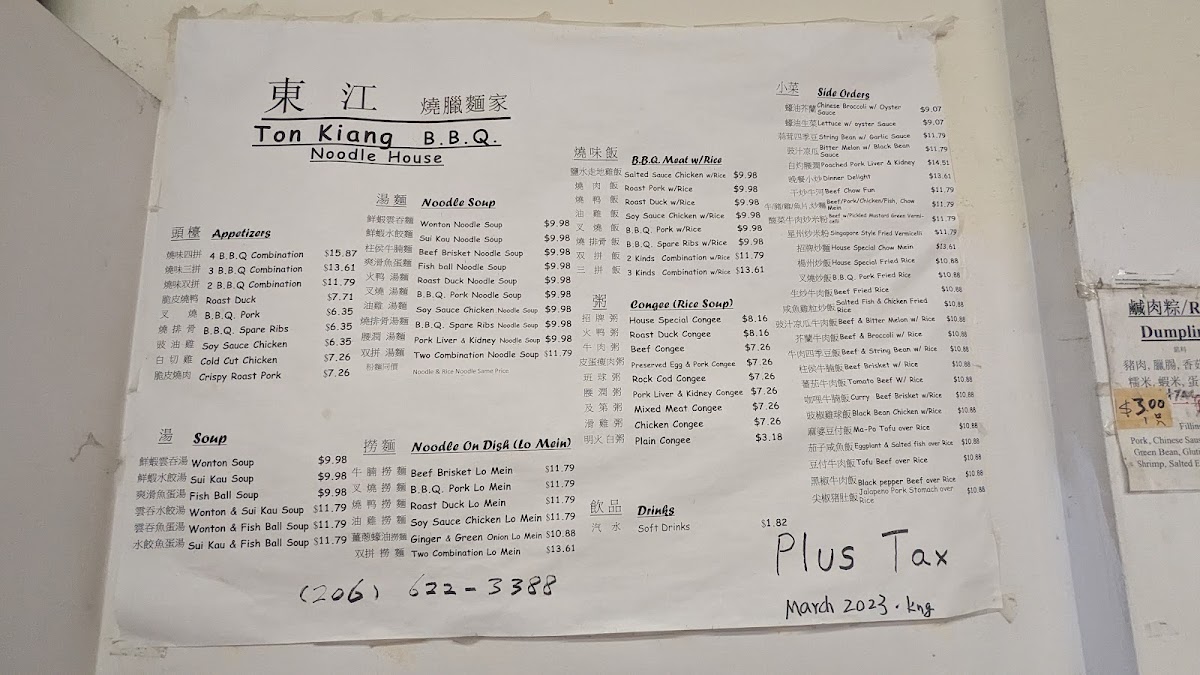 東江 燒臘麵家
Ton Kiang B.B.Q.
Noodle House
頭檯 Appetizers
燒味四拼 4 B.B.Q Combination $15.87
燒味三拼 3 B.B.Q Combination $13.61
燒味双拼 2 B.B.Q Combination $11.79
脆皮燒鴨 Roast Duck $7.71
叉燒 B.B.Q. Pork $6.35
燒排骨 B.B.Q. Spare Ribs $6.35
豉油雞 Soy Sauce Chicken $6.35
白切雞 Cold Cut Chicken $7.26
脆皮燒肉 Crispy Roast Pork $7.26
湯 Soup
鮮蝦雲吞湯 Wonton Soup $9.98
鮮蝦水餃湯 Sui Kau Soup $9.98
爽滑魚蛋湯 Fish Ball Soup $9.98
雲吞水餃湯 Wonton & Sui Kau Soup $11.79
雲吞魚蛋湯 Wonton & Fish Ball Soup $11.79
水餃魚蛋湯 Sui Kau & Fish Ball Soup $11.79
湯麵 Noodle Soup
鮮蝦雲吞麵 Wonton Noodle Soup $9.98
鮮蝦水餃麵 Sui Kau Noodle Soup $9.98
柱侯牛腩麵 Beef Brisket Noodle Soup $9.98
爽滑魚蛋麵 Fish ball Noodle Soup $9.98
火鴨湯麵 Roast Duck Noodle Soup $9.98
叉燒湯麵 B.B.Q. Pork Noodle Soup $9.98
油雞湯麵 Soy Sauce Chicken Noodle Soup $9.98
燒排骨湯麵 B.B.Q. Spare Ribs Noodle Soup $9.98
腰潤湯麵 Pork Liver & Kidney Noodle Soup $9.98
双拼湯麵 Two Combination Noodle Soup $11.79
粉麵同價 Noodle & Rice Noodle Same Price
撈麵 Noodle On Dish (Lo Mein)
牛腩撈麵 Beef Brisket Lo Mein $11.79
叉燒撈麵 B.B.Q. Pork Lo Mein $11.79
燒鴨撈麵 Roast Duck Lo Mein $11.79
油雞撈麵 Soy Sauce Chicken Lo Mein $11.79
薑蔥蠔油撈麵 Ginger & Green Onion Lo Mein $10.88
双拼撈麵 Two Combination Lo Mein $13.61
(206) 622-3388
燒味飯 B.B.Q. Meat w/Rice
鹽水走地雞飯 Salted Sauce Chicken w/Rice $9.98
燒肉飯 Roast Pork w/Rice $9.98
燒鴨飯 Roast Duck w/Rice $9.98
油雞飯 Soy Sauce Chicken w/Rice $9.98
叉燒飯 B.B.Q. Pork w/Rice $9.98
燒排骨飯 B.B.Q. Spare Ribs w/Rice $9.98
双拼飯 2 Kinds Combination w/Rice $11.79
三拼飯 3 Kinds Combination w/Rice $13.61
粥 Congee (Rice Soup)
招牌粥 House Special Congee $8.16
火鴨粥 Roast Duck Congee $8.16
牛肉粥 Beef Congee $7.26
皮蛋瘦肉粥 Preserved Egg & Pork Congee $7.26
班球粥 Rock Cod Congee $7.26
腰潤粥 Pork Liver & Kidney Congee $7.26
及第粥 Mixed Meat Congee $7.26
滑雞粥 Chicken Congee $7.26
明火白粥 Plain Congee $3.18
飲品 Drinks
汽水 Soft Drinks $1.82
小菜 Side Orders
蠔油芥蘭 Chinese Broccoli w/ Oyster Sauce $9.07
蠔油生菜 Lettuce w/ oyster Sauce $9.07
蒜茸四季豆 String Bean w/ Garlic Sauce $11.79
豉汁凉瓜 Bitter Melon w/ Black Bean Sauce $11.79
白灼腰潤 Poached Pork Liver & Kidney $14.51
晚餐小炒 Dinner Delight $13.61
干炒牛河 Beef Chow Fun $11.79
牛/豬/雞/魚片,炒麵 Beef/Pork/Chicken/Fish, Chow Mein $11.79
酸菜牛肉炒米粉 Beef w/Pickled Mustard Green Vermicelli $11.79
星州炒米粉 Singapore Style Fried Vermicelli $11.79
招牌炒麵 House Special Chow Mein $13.61
楊州炒飯 House Special Fried Rice $10.88
叉燒炒飯 B.B.Q. Pork Fried Rice $10.88
生炒牛肉飯 Beef Fried Rice $10.88
咸魚雞粒炒飯 Salted Fish & Chicken Fried Rice $10.88
豉汁凉瓜牛肉飯 Beef & Bitter Melon w/ Rice $10.88
芥蘭牛肉飯 Beef & Broccoli w/ Rice $10.88
牛肉四季豆飯 Beef & String Bean w/ Rice $10.88
柱侯牛腩飯 Beef Brisket w/ Rice $10.88
蕃茄牛肉飯 Tomato Beef W/ Rice $10.88
咖喱牛腩飯 Curry Beef Brisket w/Rice $10.88
豉椒雞球飯 Black Bean Chicken w/Rice $10.88
麻婆豆付飯 Ma-Po Tofu over Rice $10.88
茄子咸魚飯 Eggplant & Salted fish over Rice $10.88
豆付牛肉飯 Tofu Beef over Rice $10.88
黑椒牛肉飯 Black pepper Beef over Rice $10.88
尖椒豬肚飯 Jalapeno Pork Stomach over Rice $10.88
Plus Tax
March 2023. kng
鹹肉粽/R
Dumplin
豬肉,臘腸,香菇
糯米,蝦米,蛋
$3.00
Fillin
Pork, Chinese Sau
Green Bean, Glut
Shrimp, Salted E